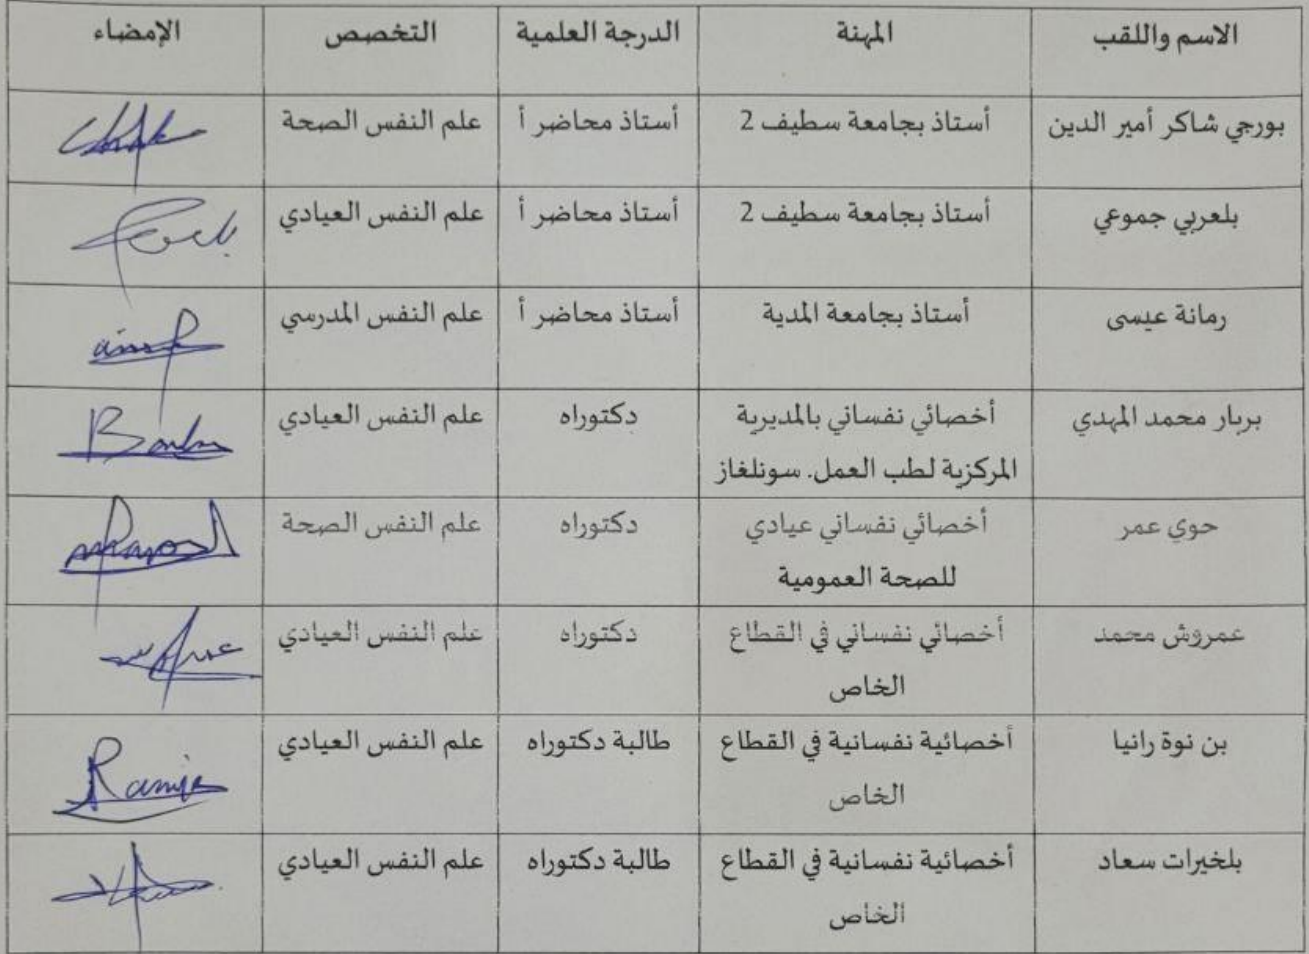 الاسم واللقب المهنة الدرجة العلمية التخصص الإمضاء
بورجي شاكر أمير الدين أستاذ بجامعة سطيف 2 أستاذ محاضر أ علم النفس الصحة
بلعربي جموعي أستاذ بجامعة سطيف 2 أستاذ محاضر أ علم النفس العيادي
رمانة عيسى أستاذ بجامعة المدية أستاذ محاضر أ علم النفس المدرسي
بربار محمد المهدي أخصائي نفساني بالمديرية دكتوراه علم النفس العيادي
المركزية لطب العمل. سونلغاز
حوي عمر أخصائي نفساني عيادي دكتوراه علم النفس الصحة
للصحة العمومية
عمروش محمد أخصائي نفساني في القطاع دكتوراه علم النفس العيادي
الخاص
بن نوة رانيا أخصائية نفسانية في القطاع طالبة دكتوراه علم النفس العيادي Rania
الخاص
بلخيرات سعاد أخصائية نفسانية في القطاع طالبة دكتوراه علم النفس العيادي
الخاص